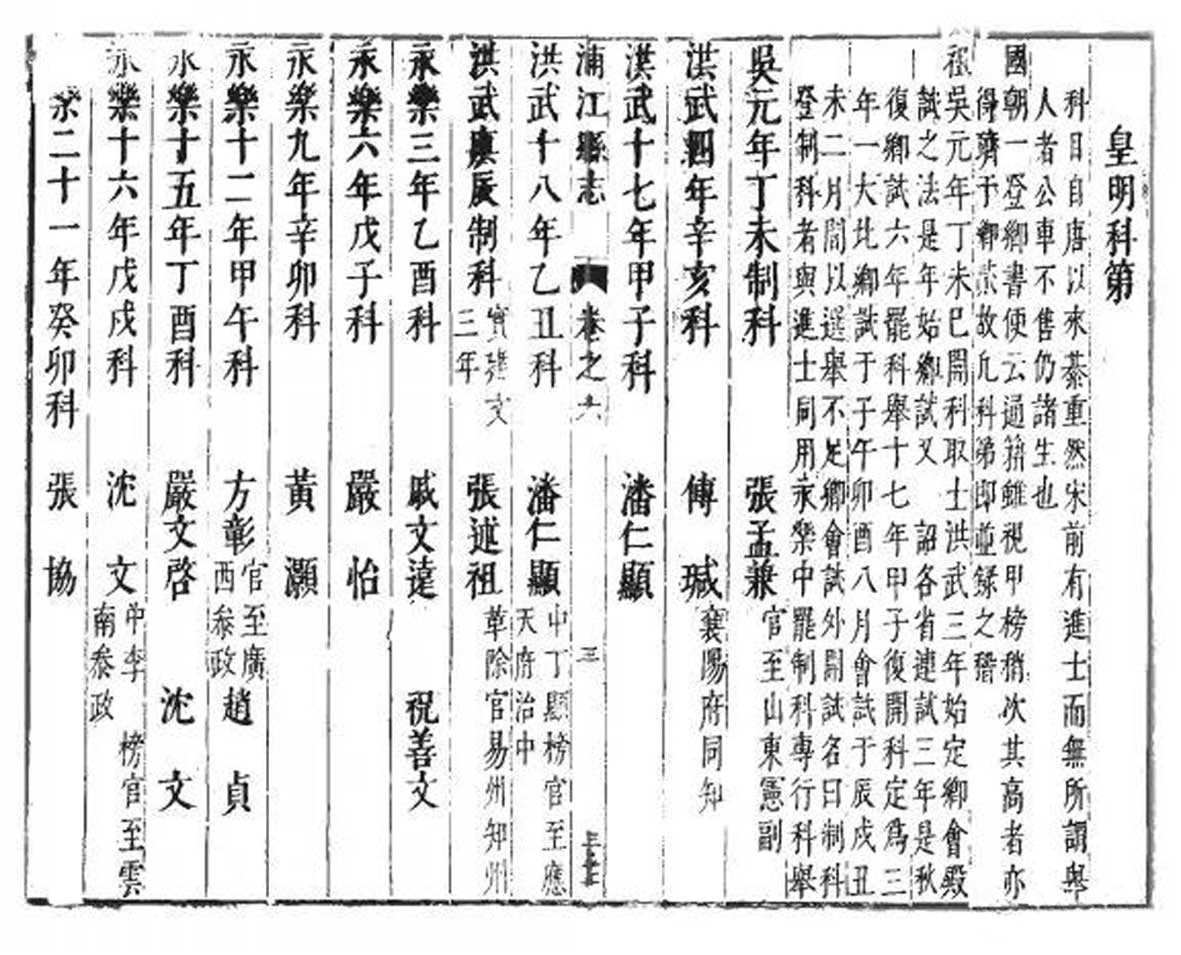 皇明科第
科目自唐以來綦重然宋前有進士而無所謂舉
人者公車不售仍諸生也
國朝一登鄉書便云通籍雖視甲榜稍次其高者亦
得躋于卿貳故凡科第即並錄之稽
祖吳元年丁未巳開科取士洪武三年始定鄉會殿
試之法是年始鄉試又 詔各省連試三年是秋
復鄉試六年罷科舉十七年甲子復開科定爲三
年一大比鄉試于子午卯酉八月會試于辰戌丑
未二月間以選舉不足鄉會試外開試名曰制科
登制科者與進士同用永樂中罷制科專行科舉
吳元年丁未制科 張孟兼 官至山東憲副
洪武四年辛亥科 傅瑊 襄陽府同知
洪武十七年甲子科 潘仁顯
浦江縣志 卷之六 三
洪武十八年乙丑科 潘仁顯 中丁顯榜官至應天府治中
洪武庚辰制科 實建文三年 張述祖 革除官易州知州
永樂三年乙酉科 戚文遠 祝善文
永樂六年戊子科 嚴怡
永樂九年辛卯科 黃灝
永樂十二年甲午科 方彰 官至廣西叅政 趙貞
永樂十五年丁酉科 嚴文啓 沈文
永樂十六年戊戌科 沈文 中李 榜官至雲南叅政
永樂二十一年癸卯科 張協